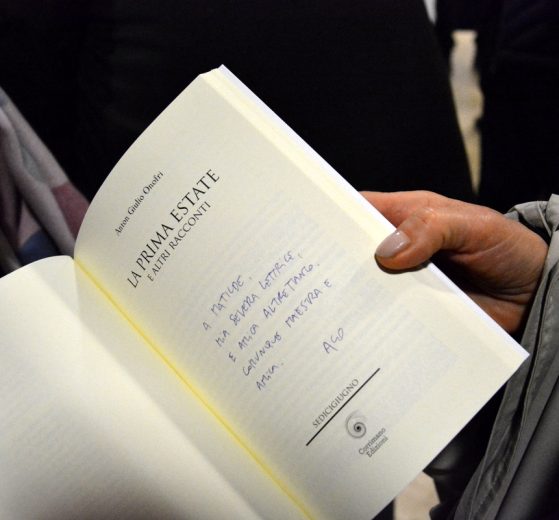 Anton Giulio Onofri
LA PRIMA ESTATE
E ALTRI RACCONTI
A MATILDE,
MIA SEVERA LETTRICE,
E AMICA ALTRETTANTO.
COMUNQUE MAESTRA E
AMICA. AGO
SEDICIGIUGNO
Corrimano
Edizioni